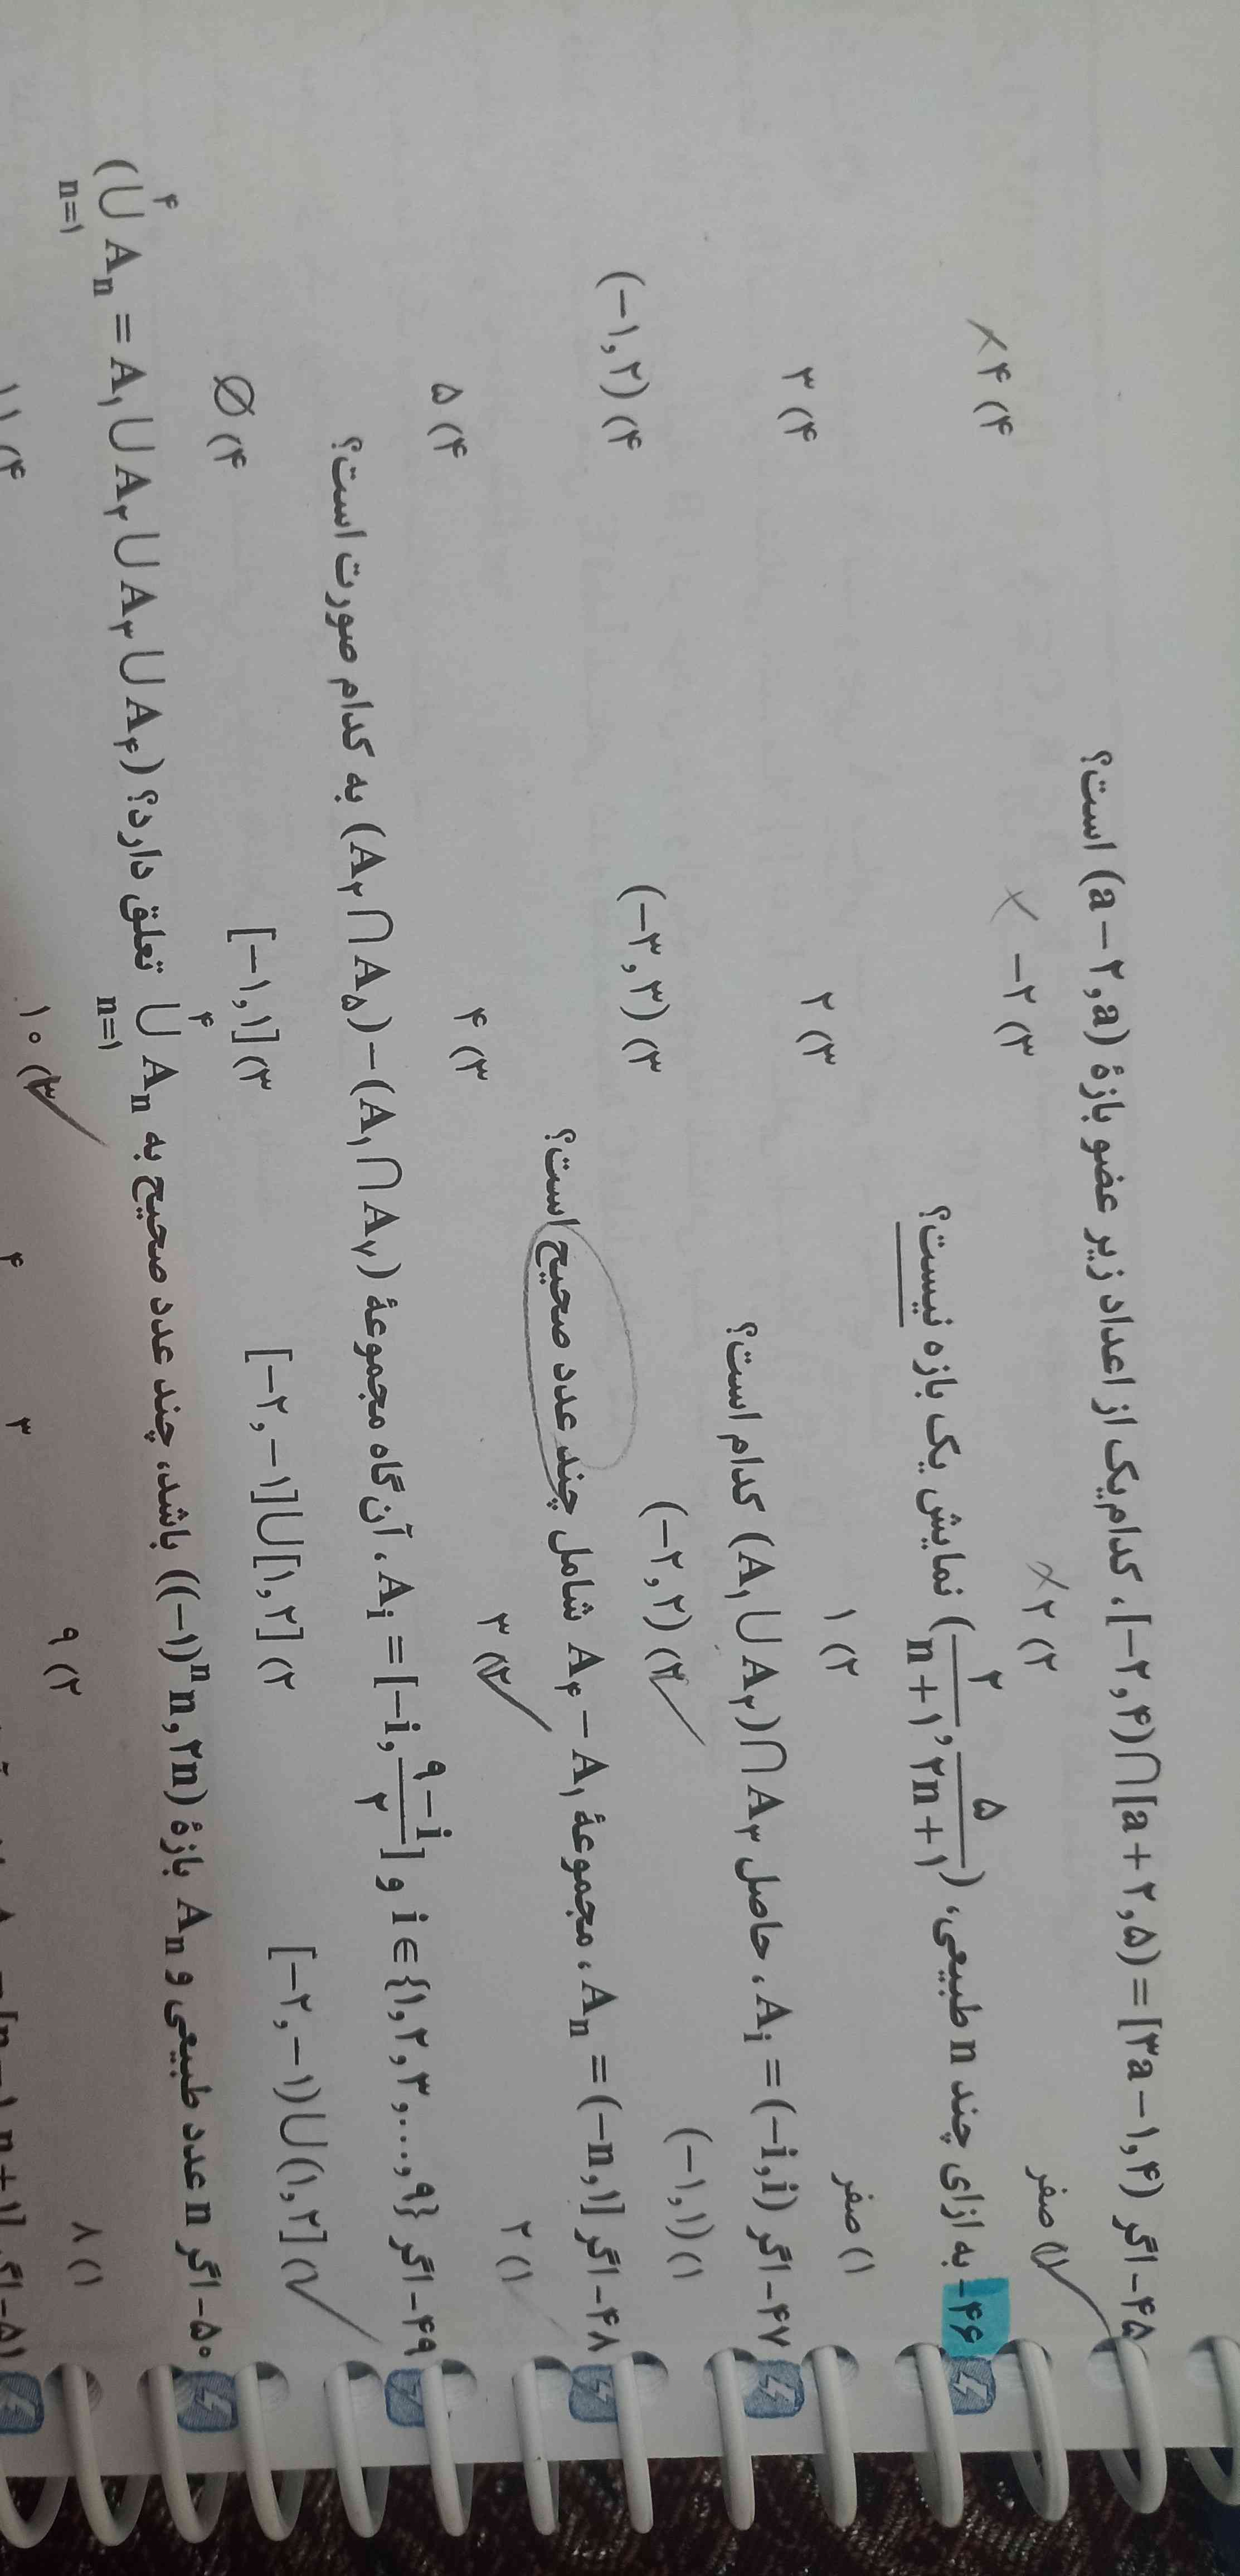 ۴۵- اگر [-۲,۴)∩[a+۲,۵)=[۳a-۱,۴)، کدام‌یک از اعداد زیر عضو بازهٔ (a-۲,a) است؟
۱) صفر ۲) ۲ ۳) -۲ ۴) ۴
۴۶- به ازای چند n طبیعی، (۲/(n+۱), ۵/(۲n+۱)) نمایش یک بازه نیست؟
۱) صفر ۲) ۱ ۳) ۲ ۴) ۳
۴۷- اگر A_i=(-i,i)، حاصل (A_۱∪A_۲)∩A_۳ کدام است؟
۱) (-۱,۱) ۲) (-۲,۲) ۳) (-۳,۳) ۴) (-۱,۲)
۴۸- اگر A_n=(-n,۱]، مجموعهٔ A_۴-A_۱ شامل چند عدد صحیح است؟
۱) ۲ ۲) ۳ ۳) ۴ ۴) ۵
۴۹- اگر i∈{۱,۲,۳,...,۹} و A_i=[-i,(۹-i)/۲]، آن‌گاه مجموعهٔ (A_۲∩A_۵)-(A_۱∩A_۷) به کدام صورت است؟
۱) [-۲,-۱)∪(۱,۲] ۲) [-۲,-۱]∪[۱,۲] ۳) [-۱,۱] ۴) ∅
۵۰- اگر n عدد طبیعی و A_n بازهٔ ((-۱)^n n,۲n) باشد، چند عدد صحیح به ⋃_{n=۱}^{۴} A_n تعلق دارد؟ (⋃_{n=۱}^{۴} A_n=A_۱∪A_۲∪A_۳∪A_۴)
۱) ۸ ۲) ۹ ۳) ۱۰ ۴) ۱۱
۵۱- اگر